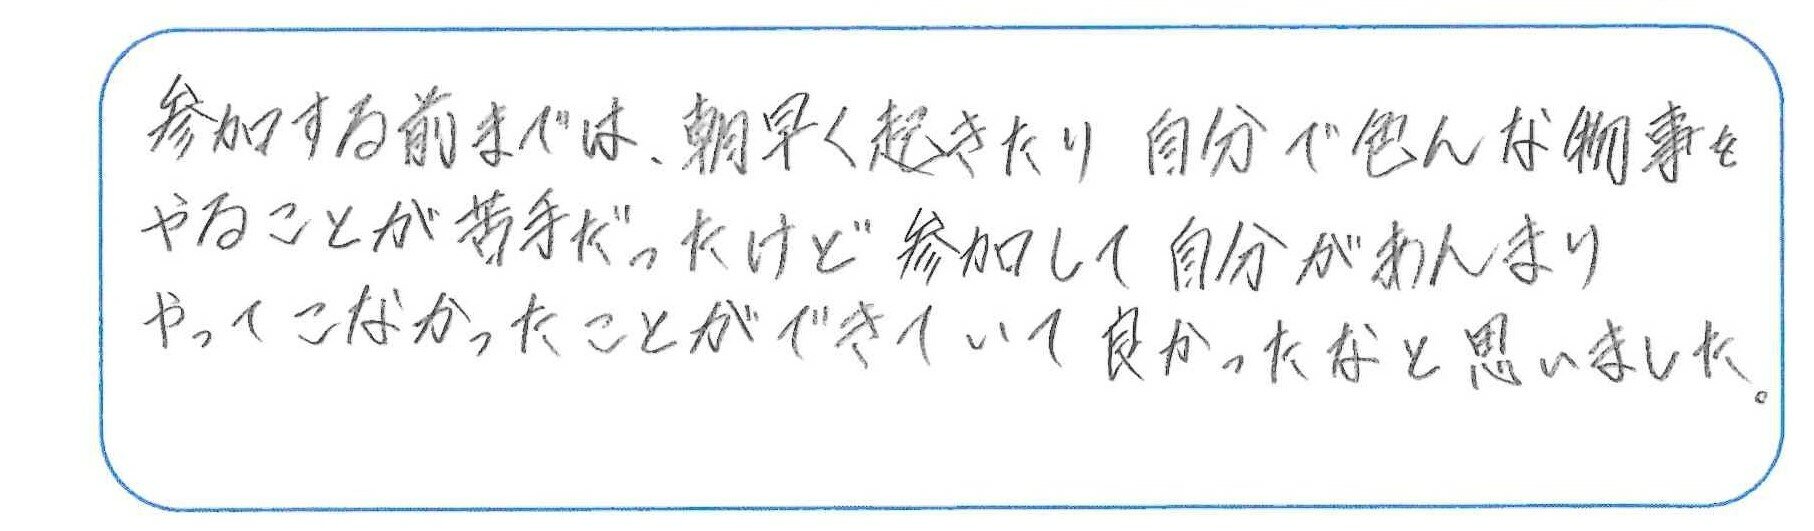 参加する前までは、朝早く起きたり 自分で色んな物事を
やることが苦手だったけど 参加して 自分があんまり
やってこなかったことができていて 良かったなと思いました。